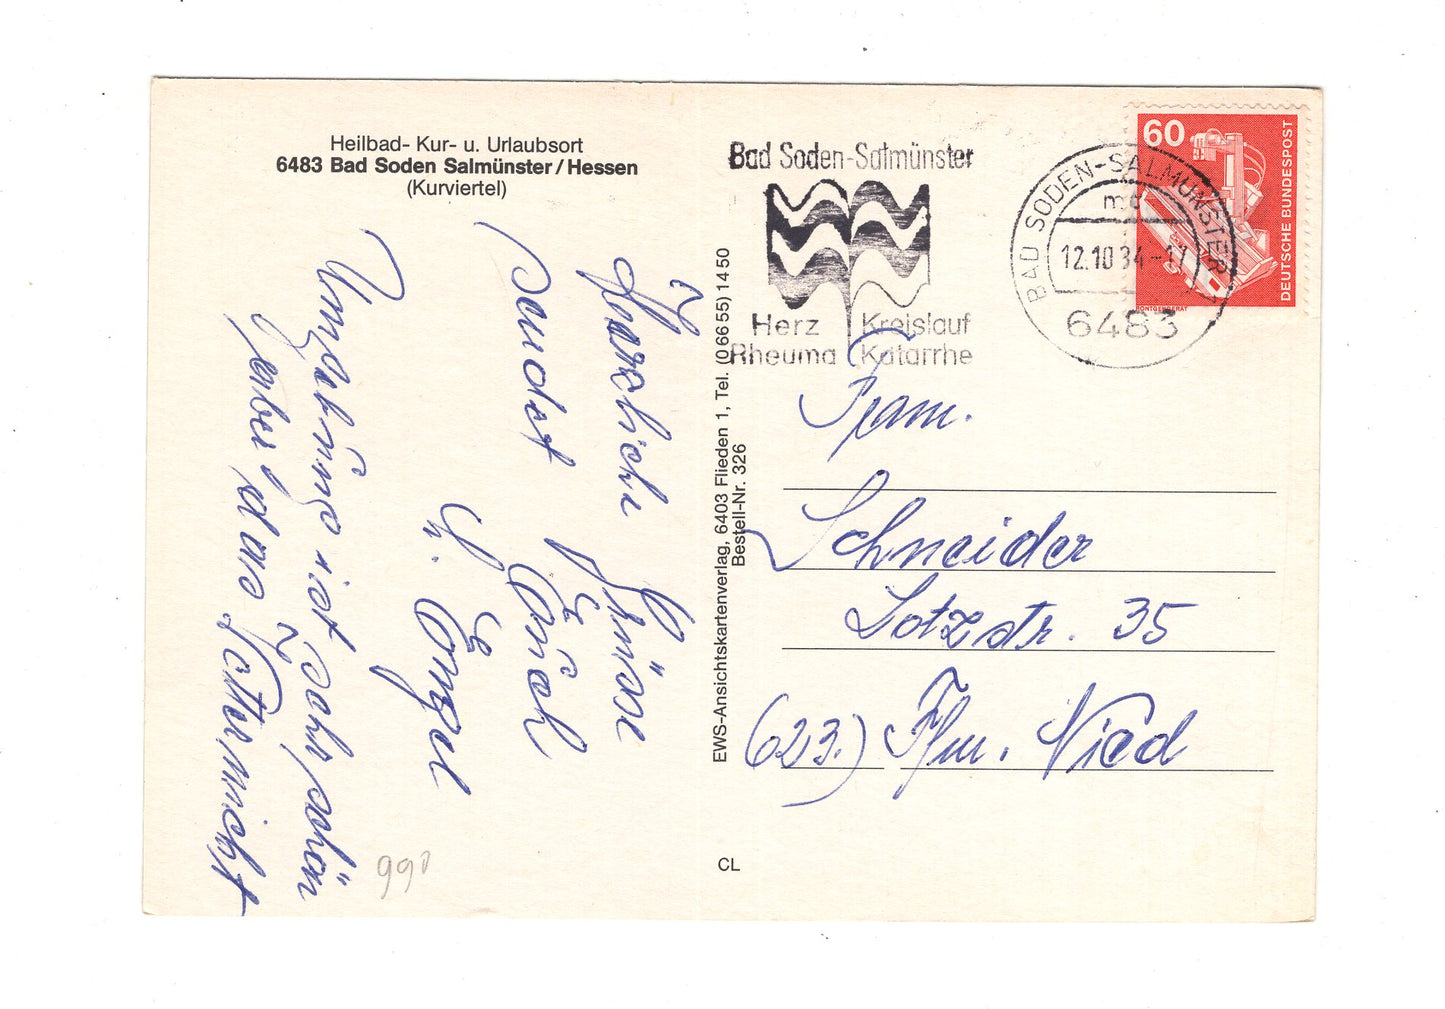 Heilbad- Kur- u. Urlaubsort
6483 Bad Soden Salmünster/Hessen
(Kurviertel)
Herzliche Grüsse
sendet Erich
u. Engel
Umgebung ist sehr schön
aber das Wetter nicht
990
EWS-Ansichtskartenverlag, 6403 Flieden 1, Tel. (0 66 55) 14 50
Bestell-Nr. 326
CL
Bad Soden-Salmünster
Herz Kreislauf
Rheuma Katarrhe
BAD SODEN-SALMÜNSTER 1
mc
12.10.84-17
6483
60
DEUTSCHE BUNDESPOST
RÖNTGENGERÄT
Fam.
Schneider
Lotzstr. 35
(623.) Ffm. Nied